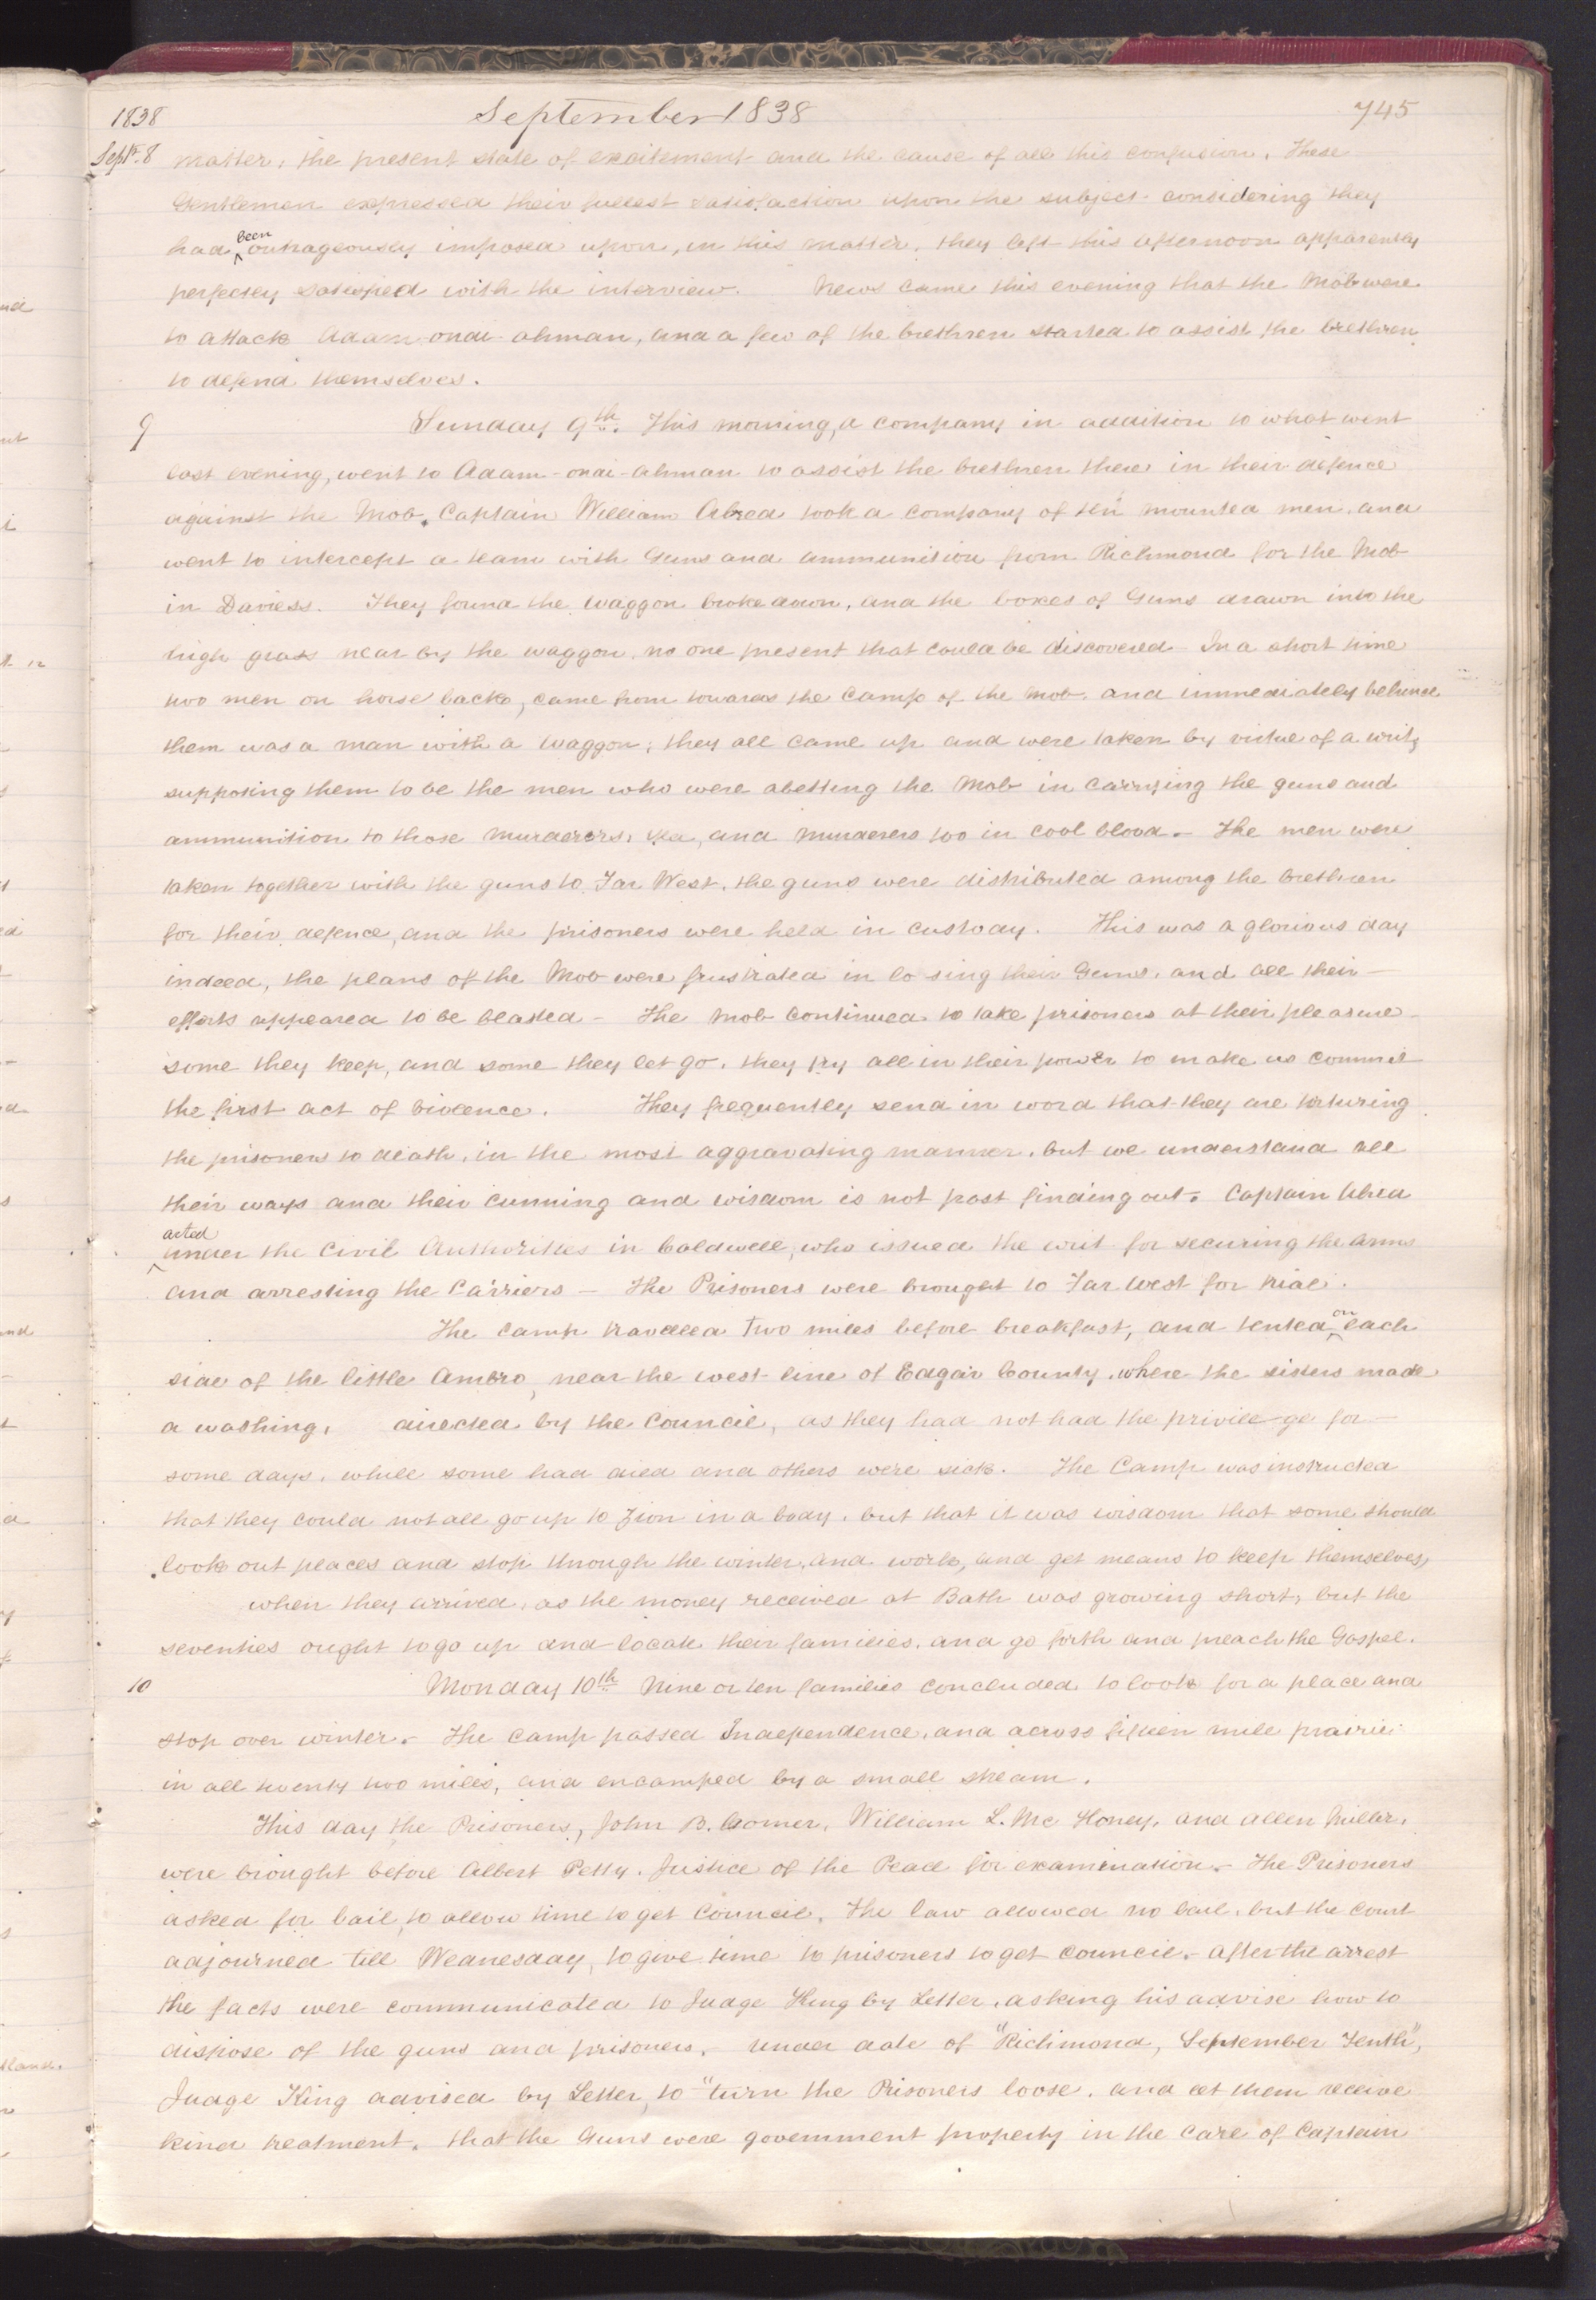 1838 September 1838 745
Septr. 8 matter, the present state of excitement and the cause of all this confusion. These
Gentlemen expressed their fullest satisfaction upon the subject considering they
had been outrageously imposed upon, in this matter, they left this afternoon apparently
perfectly satisfied with the interview. News came this evening that the Mob were
to attack Adam-ondi-ahman, and a few of the brethren started to assist the brethren
to defend themselves.
9 Sunday 9th. This morning, a company in addition to what went
last evening, went to Adam-ondi-ahman to assist the brethren there in their defence
against the Mob. Captain William Alred took a company of ten mounted men, and
went to intercept a team with Guns and ammunition from Richmond for the Mob
in Daviess. They found the waggon broke down, and the boxes of Guns drawn into the
high grass near by the waggon, no one present that could be discovered – In a short time
two men on horse back, came from towards the Camp of the Mob, and immediately behind
them was a man with a waggon; they all came up and were taken by virtue of a writ,
supposing them to be the men who were abetting the Mob in carrying the guns and
ammunition to those murderers, yea, and murderers too in cool blood.– The men were
taken together with the guns to Far West, the guns were distributed among the brethren
for their defence, and the prisoners were held in custody. This was a glorious day
indeed, the plans of the Mob were frustrated in lo sing their Guns, and all their –
efforts appeared to be blasted – The Mob continued to take prisoners at their pleasure –
some they keep, and some they let go, they try all in their power to make us commit
the first act of violence. They frequently send in word that they are torturing
the prisoners to death, in the most aggravating manner, but we understand all
their ways and their cunning and wisdom is not past finding out. Captain Alred
acted
under the Civil Authorities in Caldwell, who issued the writ for securing the arms
and arresting the Carriers – The Prisoners were brought to Far West for trial.
The Camp travelled two miles before breakfast, and tented on each
side of the little Ambro, near the west line of Edgar County, where the sisters made
a washing, directed by the Council, as they had not had the privilege for –
some days, while some had died and others were sick. The Camp was instructed
that they could not all go up to Zion in a body, but that it was wisdom that some should
look out places and stop through the winter, and work, and get means to keep themselves,
when they arrived, as the money received at Bath was growing short, but the
seventies ought to go up and locate their families, and go forth and preach the Gospel.
10 Monday 10th Nine or ten families concluded to look for a place and
stop over winter.– The Camp passed Independence, and across fifteen mile prairie
in all twenty two miles, and encamped by a small stream.
This day the Prisoners, John B. Comer, William L. Mc Honey, and Allen Miller,
were brought before Albert Petty, Justice of the Peace for examination.– The Prisoners
asked for bail, to allow time to get Council, The law allowed no bail, but the Court
adjourned till Wednesday, to give time to prisoners to get council.– After the arrest
the facts were communicated to Judge King by Letter, asking his advise how to
dispose of the guns and prisoners.– Under date of "Richmond, September Tenth",
Judge King advised by Letter, to "turn the Prisoners loose, and let them receive
kind treatment. that the Guns were government property in the care of Captain